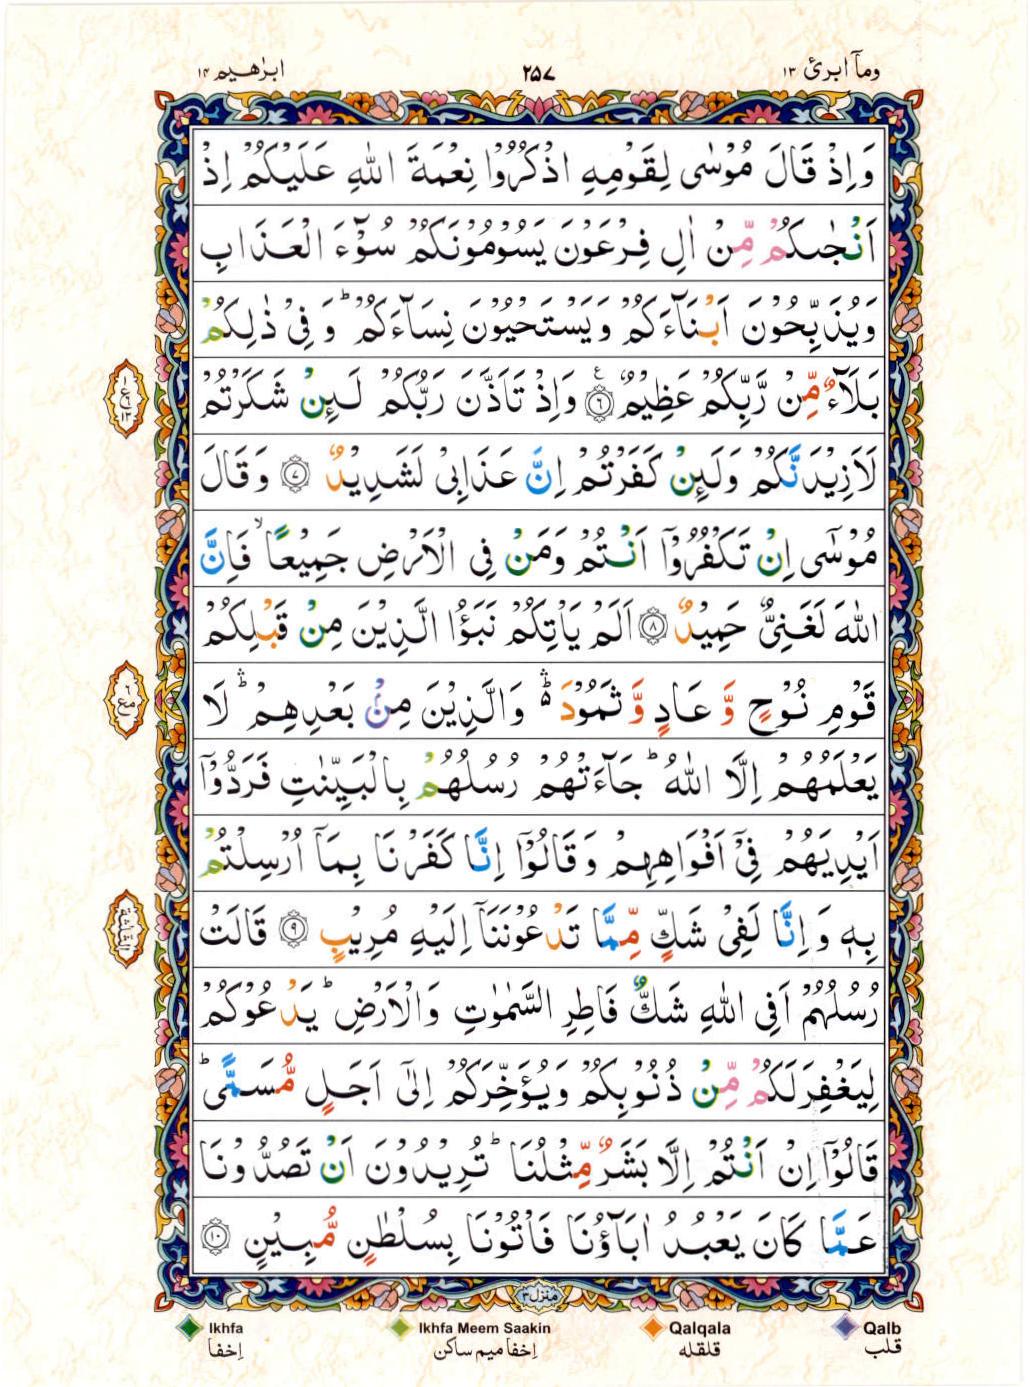 وماۤ ابرئ ۱۳
۲۵۷
ابرٰهيم ۱۴
وَاِذْ قَالَ مُوْسٰى لِقَوْمِهِ اذْكُرُوْا نِعْمَةَ اللّٰهِ عَلَيْكُمْ اِذْ
اَنْجٰىكُمْ مِّنْ اٰلِ فِرْعَوْنَ يَسُوْمُوْنَكُمْ سُوْٓءَ الْعَذَابِ
وَيُذَبِّحُوْنَ اَبْنَآءَكُمْ وَيَسْتَحْيُوْنَ نِسَآءَكُمْ ؕ وَفِىْ ذٰلِكُمْ
بَلَآءٌ مِّنْ رَّبِّكُمْ عَظِيْمٌ ۝۶ ع وَاِذْ تَاَذَّنَ رَبُّكُمْ لَئِنْ شَكَرْتُمْ
لَاَزِيْدَنَّكُمْ وَلَئِنْ كَفَرْتُمْ اِنَّ عَذَابِىْ لَشَدِيْدٌ ۝۷ وَقَالَ
مُوْسٰٓى اِنْ تَكْفُرُوْٓا اَنْتُمْ وَمَنْ فِى الْاَرْضِ جَمِيْعًا ۙ فَاِنَّ
اللّٰهَ لَغَنِىٌّ حَمِيْدٌ ۝۸ اَلَمْ يَاْتِكُمْ نَبَؤُا الَّذِيْنَ مِنْ قَبْلِكُمْ
قَوْمِ نُوْحٍ وَّ عَادٍ وَّ ثَمُوْدَ ۛؕ وَالَّذِيْنَ مِنْۢ بَعْدِهِمْ ۛؕ لَا
يَعْلَمُهُمْ اِلَّا اللّٰهُ ؕ جَآءَتْهُمْ رُسُلُهُمْ بِالْبَيِّنٰتِ فَرَدُّوْٓا
اَيْدِيَهُمْ فِىْٓ اَفْوَاهِهِمْ وَقَالُوْٓا اِنَّا كَفَرْنَا بِمَآ اُرْسِلْتُمْ
بِهٖ وَاِنَّا لَفِىْ شَكٍّ مِّمَّا تَدْعُوْنَنَآ اِلَيْهِ مُرِيْبٍ ۝۹ قَالَتْ
رُسُلُهُمْ اَفِى اللّٰهِ شَكٌّ فَاطِرِ السَّمٰوٰتِ وَالْاَرْضِ ؕ يَدْعُوْكُمْ
لِيَغْفِرَ لَكُمْ مِّنْ ذُنُوْبِكُمْ وَيُؤَخِّرَكُمْ اِلٰٓى اَجَلٍ مُّسَمًّى ؕ
قَالُوْٓا اِنْ اَنْتُمْ اِلَّا بَشَرٌ مِّثْلُنَا ؕ تُرِيْدُوْنَ اَنْ تَصُدُّوْنَا
عَمَّا كَانَ يَعْبُدُ اٰبَآؤُنَا فَاْتُوْنَا بِسُلْطٰنٍ مُّبِيْنٍ ۝۱۰
منزل ۳
Ikhfa
Ikhfa Meem Saakin
Qalqala
Qalb
اِخفا
اِخفا میم ساکن
قلقله
قلب